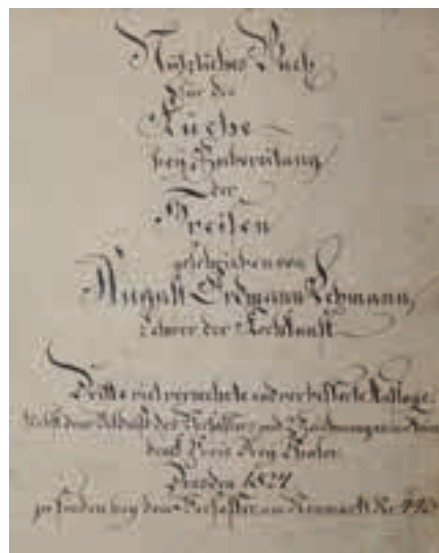 Nützliches Buch
für die
Küche
bey Zubereitung
der
Speisen
geschrieben von
August Erdmann Lehmann,
Lehrer der Kochkunst
Dritte viel vermehrte und verbesserte Auflage.
Nebst dem Bildniß des Verfassers und Zeichnungen
Preis Drey Thaler.
Dresden 1827
zu finden bey dem Verfasser, am Neumarkt Nr.